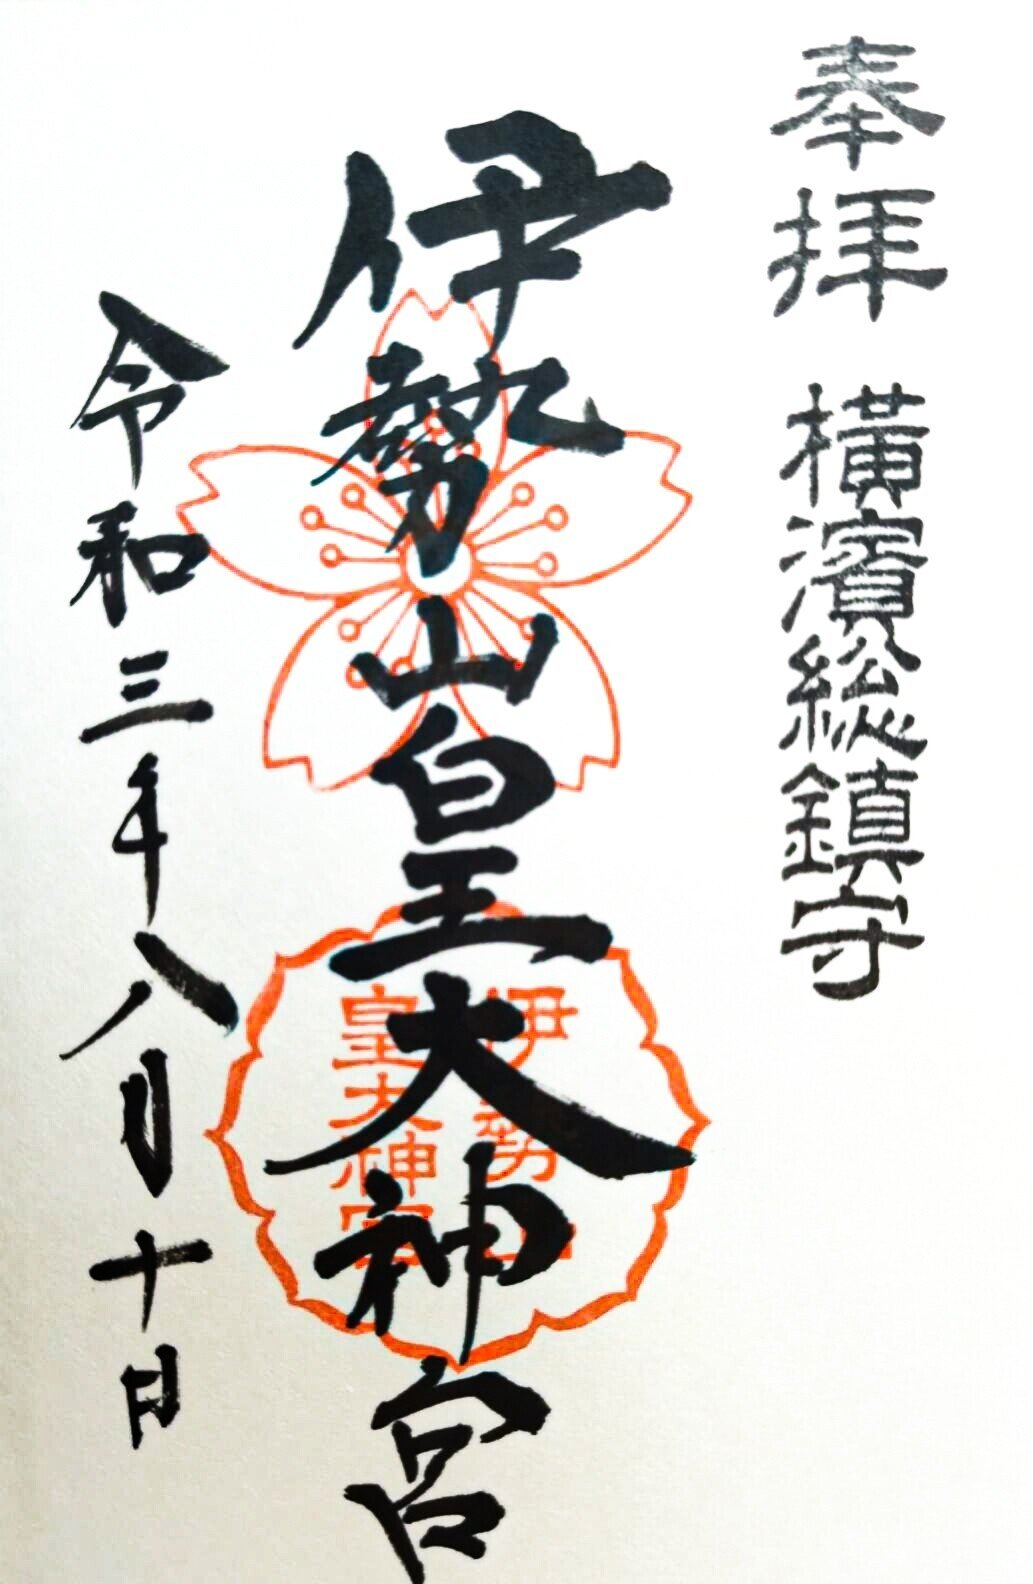 奉拝 横濱総鎮守
伊勢山皇大神宮
伊勢山
皇大神宮
令和三年八月十日